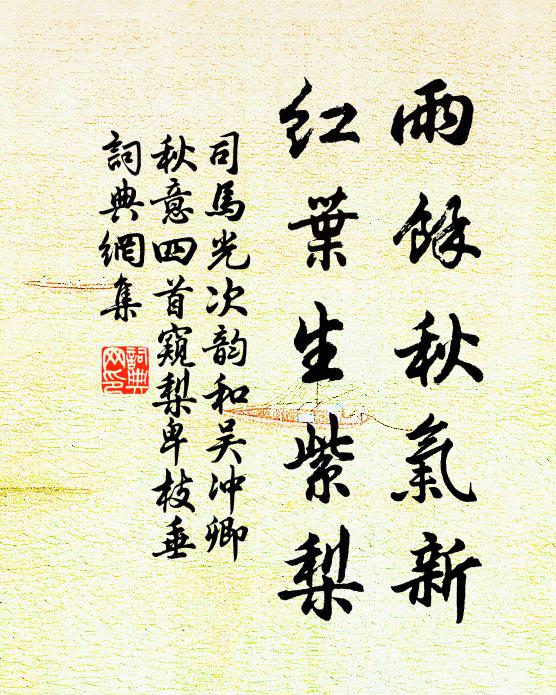 雨餘秋氣新
紅葉生紫梨
司馬光次韵和吴冲卿
秋意四首窺梨卑枝垂
詞典網集
詞典
网印